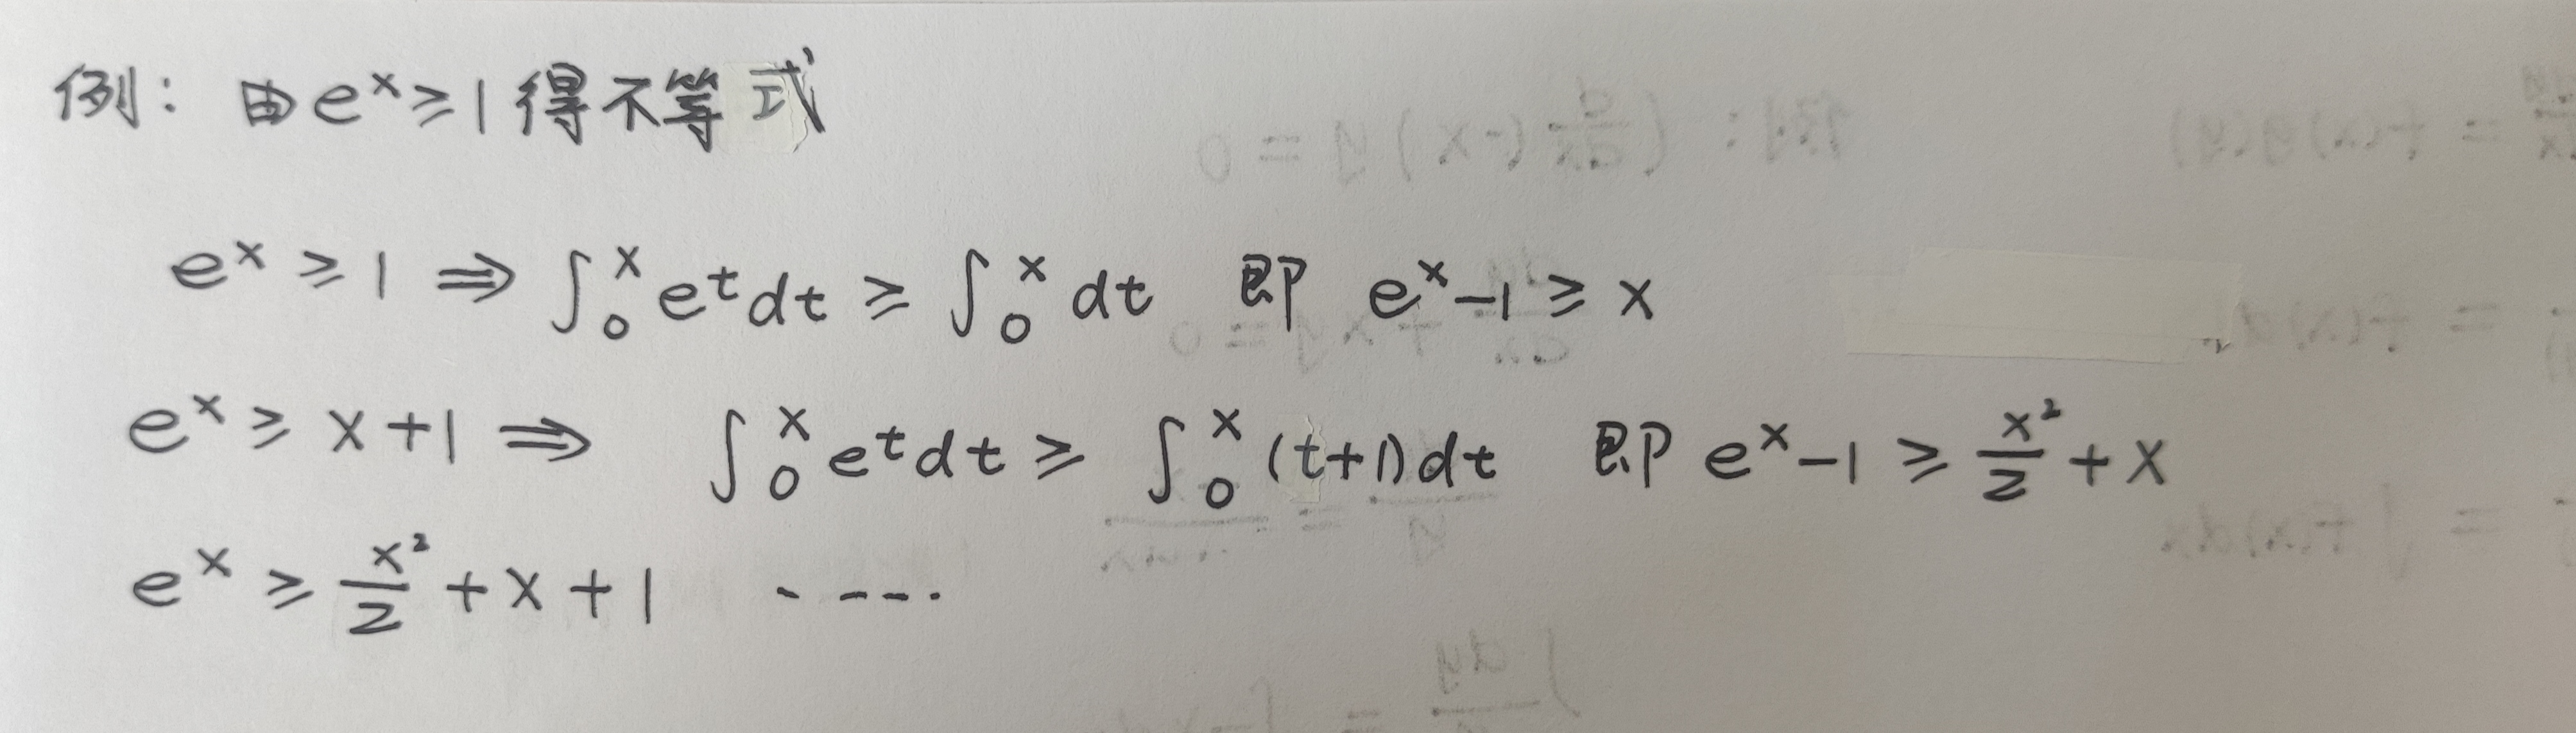 例：由 eˣ ≥ 1 得不等式
eˣ ≥ 1 ⇒ ∫₀ˣ eᵗdt ≥ ∫₀ˣ dt 即 eˣ-1 ≥ x
eˣ ≥ x+1 ⇒ ∫₀ˣ eᵗdt ≥ ∫₀ˣ (t+1)dt 即 eˣ-1 ≥ x²/2 + x
eˣ ≥ x²/2 + x + 1 ·····